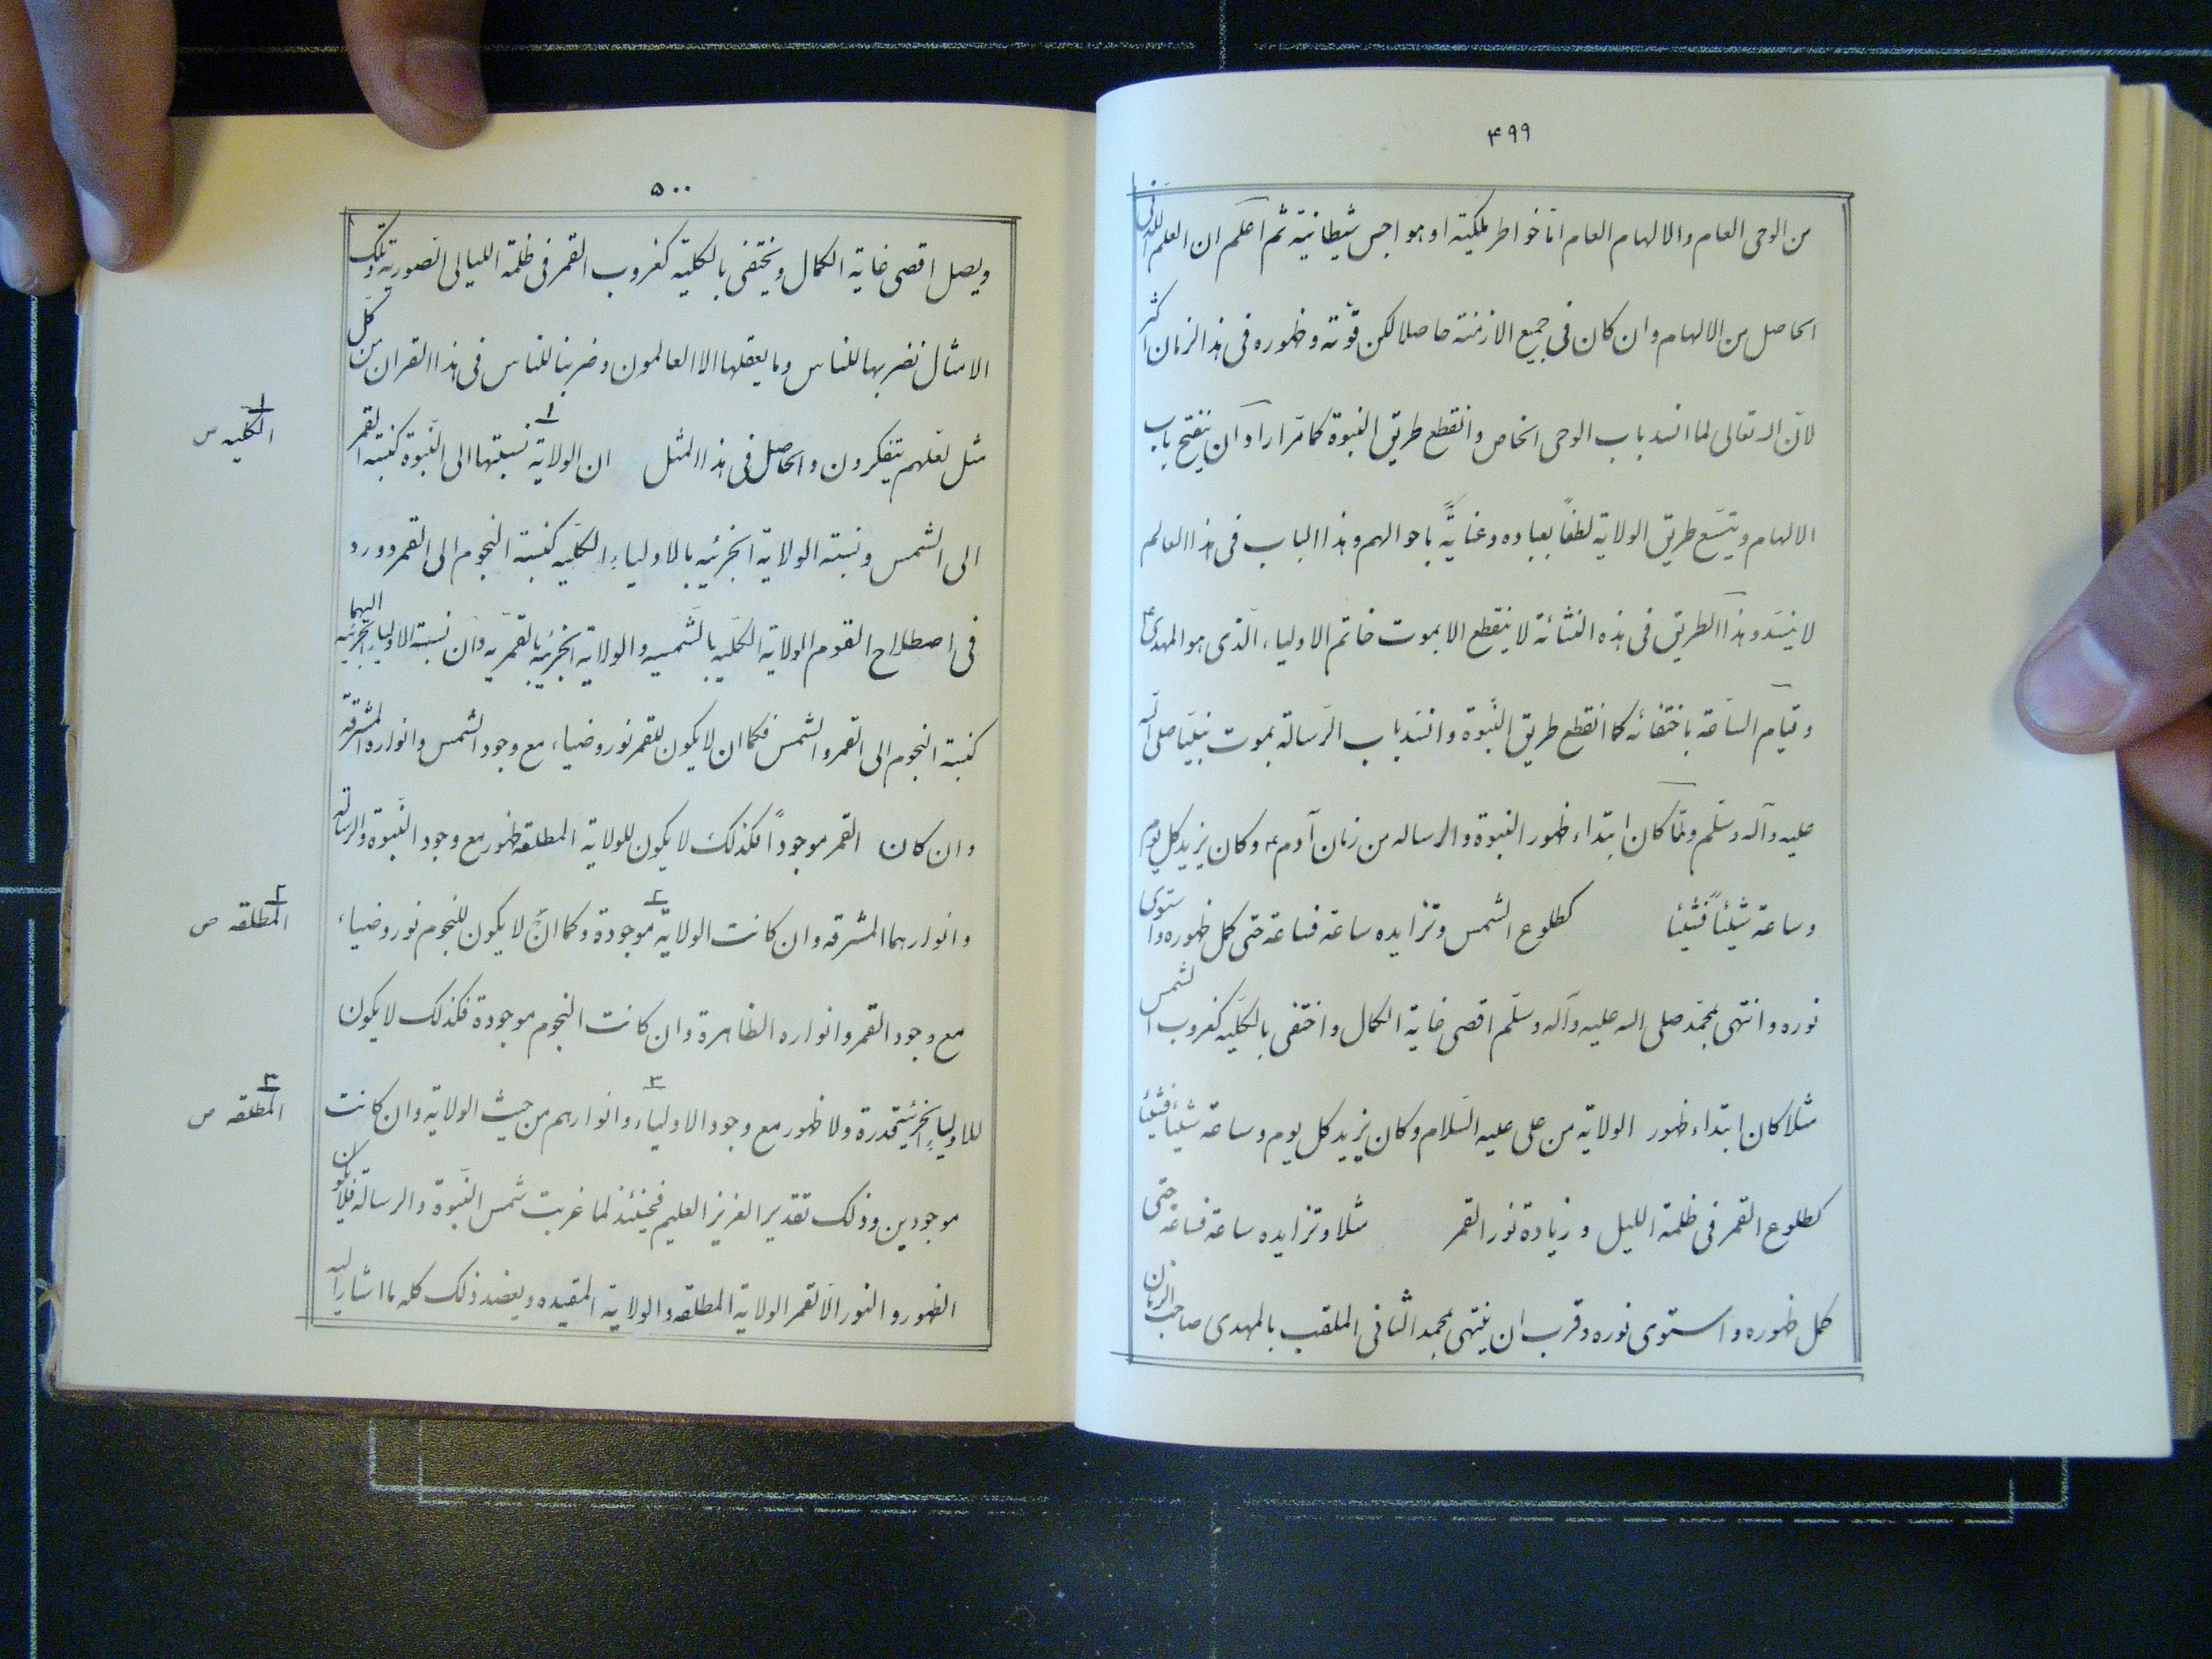 ۴۹۹
من الوحی العام والالهام العام امّا خواطر ملکیته او هواجس شیطانیّة ثم اعلم ان العلم اللدنّی
الحاصل من الالهام وان کان فی جمیع الازمنة حاصلا لکن قوته وظهوره فی هذا الزمان اکثر
لانّ الله تعالی لما انسد باب الوحی الخاص وانقطع طریق النبوة کما مرّ اراد ان ینفتح باب
الالهام ویتسع طریق الولایة لطفاً بعباده وعنایةً باحوالهم وهذا الباب فی هذا العالم
لا ینسد وهذا الطریق فی هذه النشأئة لا ینقطع الا بموت خاتم الاولیاء الّذی هو المهدی ع
وقیام السّاعة باختفائه کما انقطع طریق النّبوة وانسد باب الرّسالة بموت نبیّنا صلی الله
علیه وآله وسلّم ولمّا کان ابتداء ظهور النبوة والرساله من زمان آدم ع وکان یزید کل یوم
وساعة شیئاً فشیئا کطلوع الشمس وتزایده ساعة فساعة حتی کمل ظهوره واستوی
نوره وانتهی بمحمّد صلی الله علیه وآله وسلّم اقصی غایة الکمال واختفی بالکلّیه کغروب الشمس
مثلا کان ابتداء ظهور الولایة من علی علیه السّلام وکان یزید کل یوم وساعة شیئا فشیئا
کطلوع القمر فی ظلمة اللیل وزیادة نور القمر مثلا وتزایده ساعة فساعة حتی
کمل ظهوره واستوی نوره وقرب ان ینتهی بمحمد الثانی الملقب بالمهدی صاحب الزمان
۵۰۰
ویصل اقصی غایة الکمال ویختفی بالکلیّه کغروب القمر فی ظلمة اللیالی الصوریة وتلک
الامثال نضربها للناس وما یعقلها الا العالمون وضربنا للناس فی هذا القران من کل
مثل لعّلهم یتفکرون والحاصل فی هذا المثل ان الولایة ۱ نسبتها الی النّبوة کنسبة القمر
۱ الکلیه ص
الی الشمس ونسبة الولایة الجزئیه بالاولیاء الکلّیه کنسبة النجوم الی القمر وورد
فی اصطلاح القوم الولایة الکلّیه بالشّمسیه والولایة الجزئیّه بالقمرّیه وان نسبة الاولیاء الجزئیّه الیهما
کنسبة النجوم الی القمر والشمس فکما ان لا یکون للقمر نور وضیاء مع وجود الشمس وانواره المشرقة
وان کان القمر موجوداً فکذلک لا یکون للولایة المطلقة ظهور مع وجود النّبوة والرسالة
وانوارهما المشرقه وان کانت الولایة ۲ موجودة وکما انّ لا یکون للنجوم نور وضیاء
۲ المطلقه ص
مع وجود القمر وانواره الظاهرة وان کانت النجوم موجودة فکذلک لا یکون
للاولیاء الجزئیّة قدرة ولا ظهور مع وجود الاولیاء ۳ وانوارهم من حیث الولایة وان کانت
۳ المطلقه ص
موجودین وذلک تقدیر العزیز العلیم فحینئذ لما غربت شمس النّبوة والرسالة فلا یکون
الظهور والنور الّا لقمر الولایة المطلقه والولایة المقیده ویعضد ذلک کله ما اشار الیه